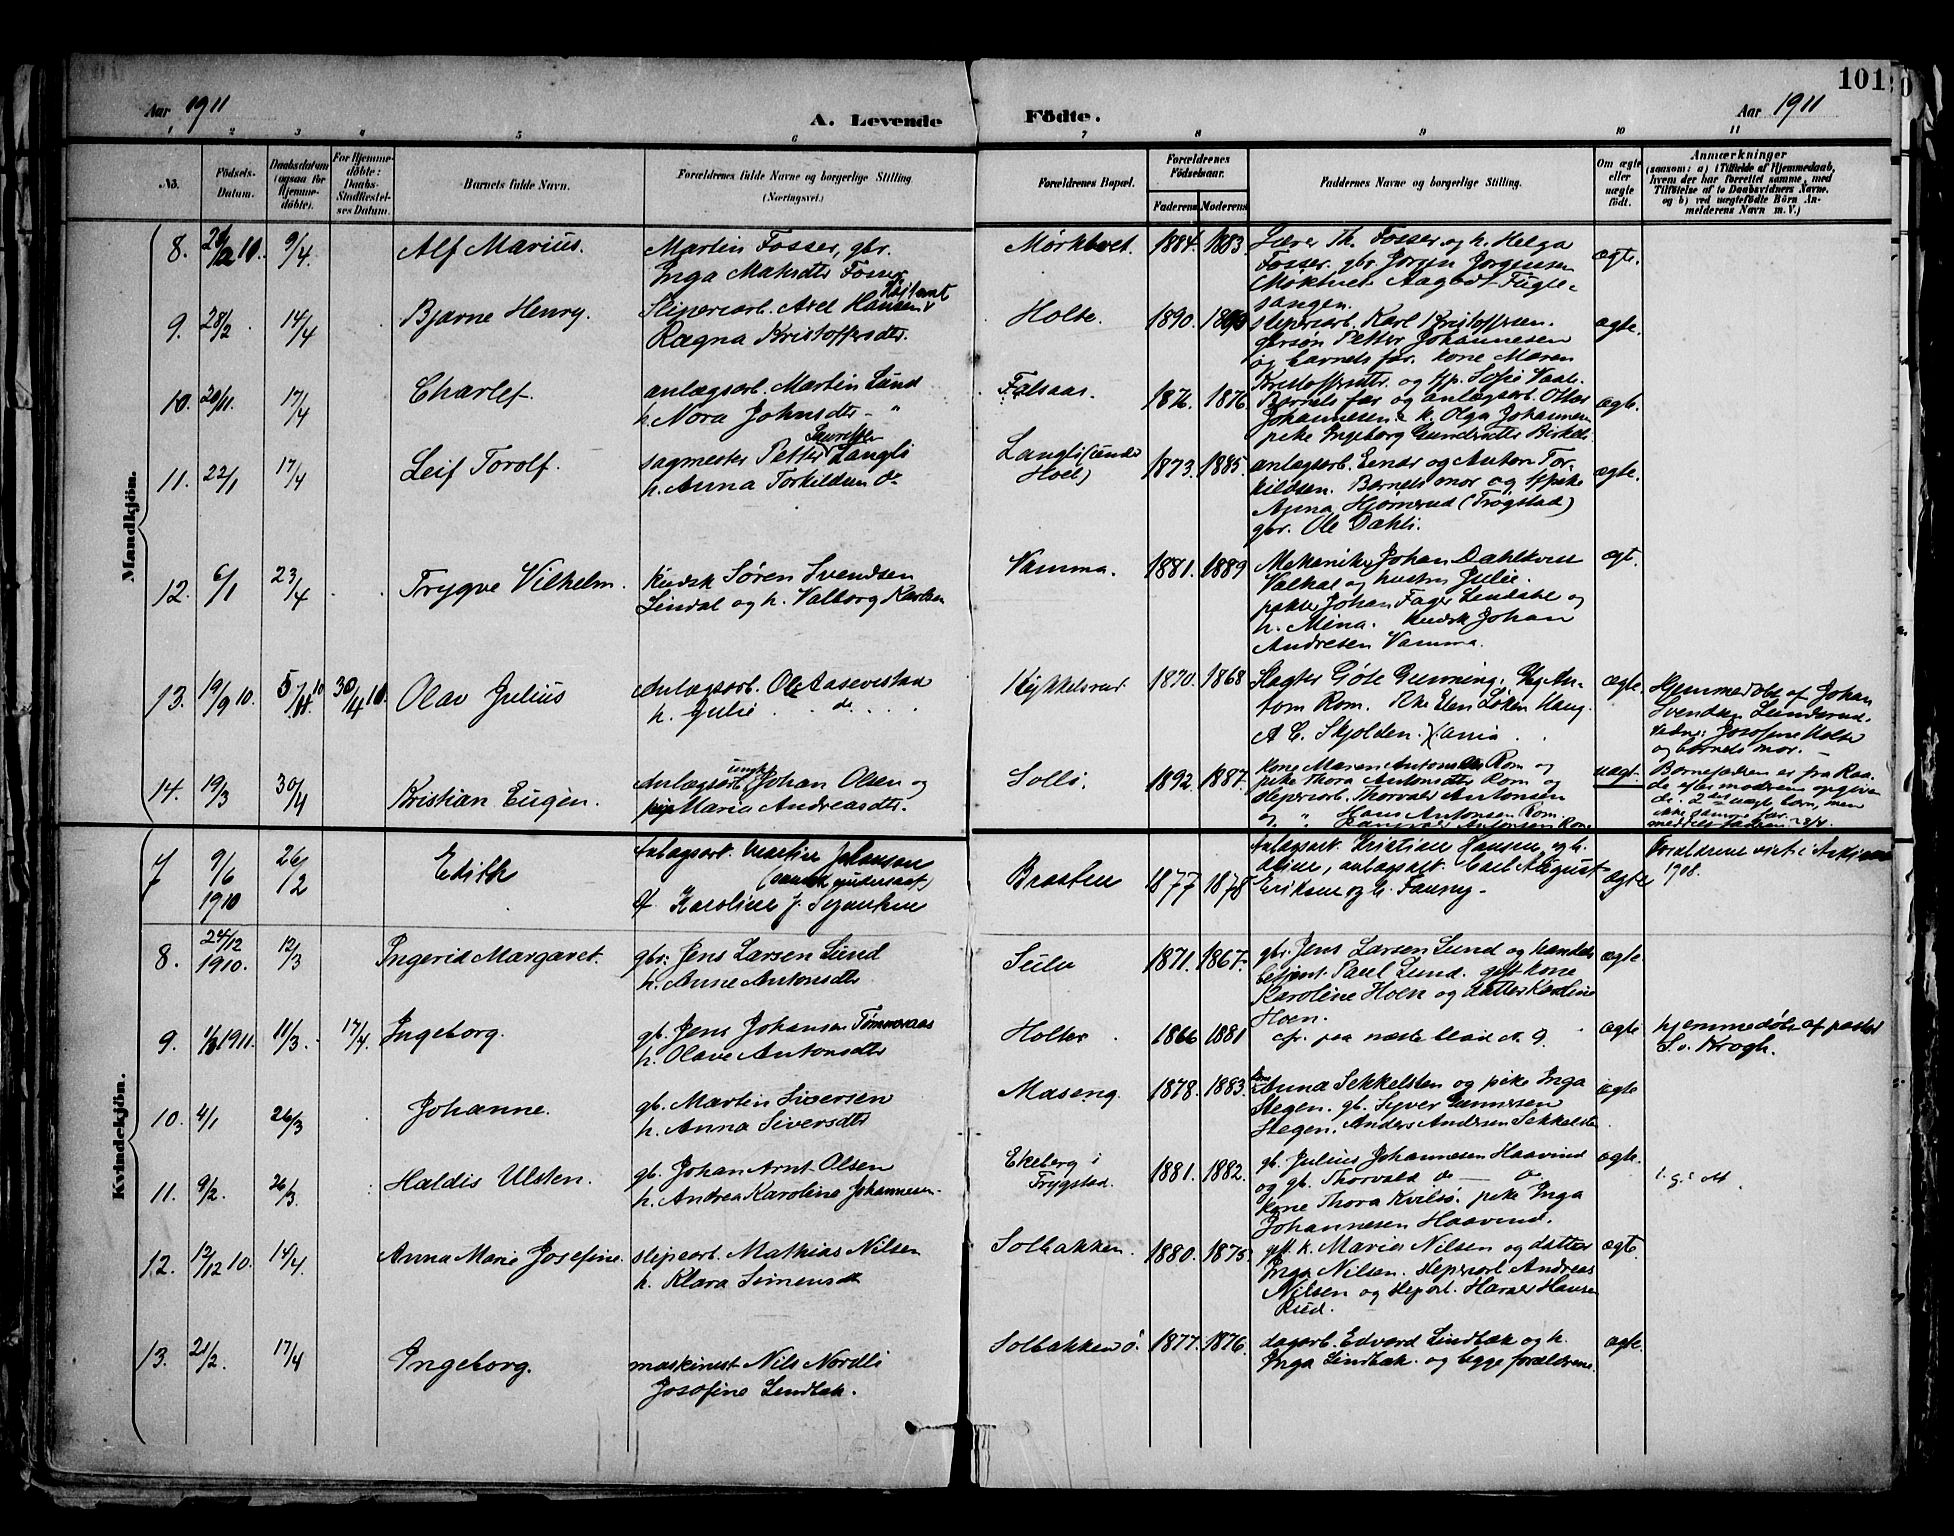 101
Aar 1911
A. Levende
Födte.
Aar 1911
1 2 3 4 5 6 7 8 9 10 11
No.
Födsels-
Datum.
Daabsdatum
(ogsaa for
Hjemme-
döbte).
For Hjemme-
döbte:
Daabs-
Stadfæstel-
ses Datum.
Barnets fulde Navn.
Forældrenes fulde Navne og borgerlige Stilling
(Næringsvei.)
Forældrenes Bopæl.
Forældrenes
Födselsaar.
Faderens Moderens
Faddernes Navne og borgerlige Stilling.
Om ægte
eller
uægte
födt.
Anmærkninger
(saasom: a) i Tilfælde af Hjemmedaab,
hvem der har forrettet samme, med
Tilföielse af to Daabsvidners Navne,
og b) ved uægtefödte Börn An-
melderens Navn m. V.)
Mandkjön.
8. 9/4. Alf Marius.
Martin Fosser, gbr.
Inga Mathsdtr Fosser
Mørktvet. 1884. 1883.
Lærer Th. Fosser og h. Helga
Fosser. gbr Jørgen Jørgensen
Mørktvet Aagodt Fugle-
sangen.
ægte.
9. 28/2. 14/4 Bjarne Henry.
Sliperiarb. Axel Hansen
Ragna Kristoffersdtr.
Holte. 1890.
sliperiarb. Karl Kristoffersen.
gbrsøn Petter Johannesen
og barnets far. kone Maren
Kristoffersdtr. og pp. Sofie
ægte.
10. 20/11. 17/4 Charles.
anlægsarb. Martin Lund
h. Nora Johnsdtr - "
Falsaas. 1876. 1876
Barnets far og anlægsarb. Ottar
Johannesen & k. Olga Johannesen
pike Ingeborg
ægte.
11. 22/1 17/4 Leif Torolf.
sagmester Petter Lauritsen Langli
h. Anna Torkildsen do
Langli (under
Hoel) 1873. 1885.
anlægsarb. Einar og Anton Tor-
kildsen. Barnets mor og pike
Anna Hjørnerud (Trøgstad)
gbr. Ole Dahli.
ægte.
12. 6/1 23/4 Trygve Vilhelm.
Kudsk Søren Svendsen
Lindal og h. Valborg Karlsen
Vamma. 1881. 1889
Mekaniker Johan Dahlkven
Valhal og hustru Julie.
Johan Fager og
h. Mina. Kudsk Johan
Andresen Vamma.
ægt.
13. 19/9 10. Olav Julius
Anlægsarb. Ole Aasevestad
h. Julie do
Kykkelsrud. 1870. 1868
Slagter Göte Gunning. An-
tom Rom. Pike Elen Løken Haug.
A C. Skjolden.
ægte.
Hjemmedøbt af Johan
Svendsen Lunderud.
Vidner: Josefine Holte
og barnets mor.
14. 19/3 30/4 Kristian Eugen.
Anlægsarb. ungk Johan Olsen og
pige Maria Andreasdtr.
Solli. 1892. 1887.
kone Maren Antonsen Rom og
pike Thora Antonsdtr Rom og
sliperiarb. Thorvald Antonsen
og " Hans Antonsen Rom.
uægt.
Barnefaderen er fra Raa-
de efter moderens opgiven
de. 2det uægt barn, men
ikke samme far
Kvindekjön.
7 9/6
1910
26/2 Edith
Anlægsarb. Martin Johansen
(svensk undersaat)
Karoline J.
Braaten 1877 1878
Anlægsarb. Kristian Hansen, og h.
anlægsarb. Carl August
Eriksen og h. Fanny.
ægte
Forældrene viet i Askim
1908.
8. 24/12
1910. 12/3 Ingerid Margaret.
gbr. Jens Larsen Lund
h. Anne Antonsdtr
1871. 1867.
gbr. Jens Larsen Lund og handels-
betjent Paul Lund. gift kone
Karoline Hoen og datter Karoline
Hoen.
ægte
9. 1911. 11/3. 17/4. Ingeborg.
gb. Jens Johansen Tømmeraas
h. Olave Antonsdtr
Holter. 1866 1881
cfr. paa næste blad n. 9.
ægte
hjemmedøbt af pastor
S. v. Krogh.
10. 4/1 26/3 Johanne.
gb. Martin Siversen
h. Anna Siversdtr
Maseng. 1878. 1883.
Anna Sekkelsten og pike Inga
Stegen. gb. Syver Gunnersen
Stegen. Anders Andersen Sekkelsten.
ægte
11. 9/2. 26/3. Haldis Ulsten.
gb. Johan Arnt Olsen
h. Andrea Karoline Johannesen.
Ekeberg i
Trygstad. 1881. 1882.
gb. Julius Johannesen Haavind
og gb. Thorvald do — o
kone Thora Kvilsø. pike Inga
Johannesen Haavind.
ægte.
12. 12/12 10. 14/4. Anna Marie Josefine.
slipearb. Mathias Nilsen
h. Klara Simensdtr
Solbakken. 1880. 1875.
gft. k. Maria Nilsen og datter
Inga Nilsen. sliperiarb Andreas
Nilsen og slipeb. Harald Hansen
Rud.
ægte.
13. 21/2. 17/4 Ingeborg.
maskinist Nils Nordli
Josefine Lindbæk.
Solbakken ö. 1877. 1876.
dagarb. Edvard Lindbæk og h.
Inga Lindbæk. og begge forældrene.
ægte.